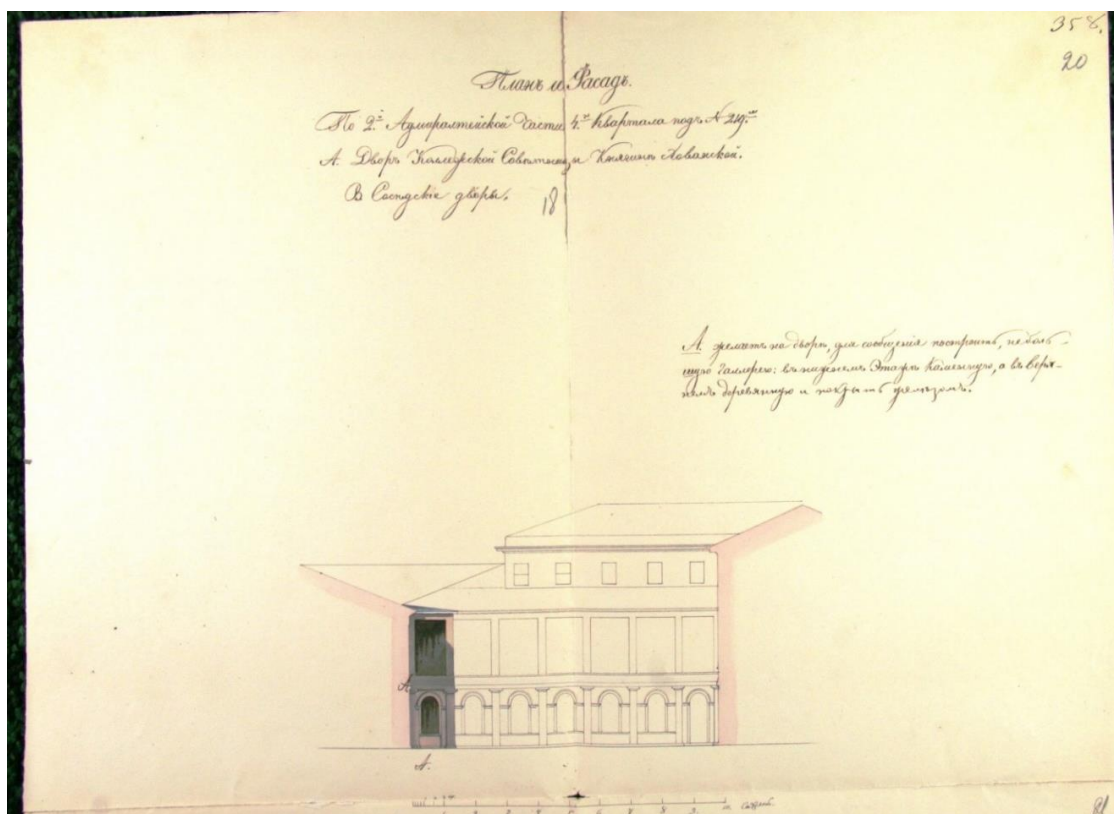 358.
20
Планъ и Фасадъ.
По 2й Адмиралтейской Части 4го Квартала подъ № 219мъ
А. Дворъ Коллежской Совѣтницы Княгини Хованской.
В Сосѣдскіе дворы.
18
А. желаетъ на дворѣ, для сообщенія построить, неболь-
шую Галлерею: въ нижнемъ Этажѣ Каменную, а въ Верх-
немъ деревянную и покрыть желѣзомъ.
А
А.
сажень